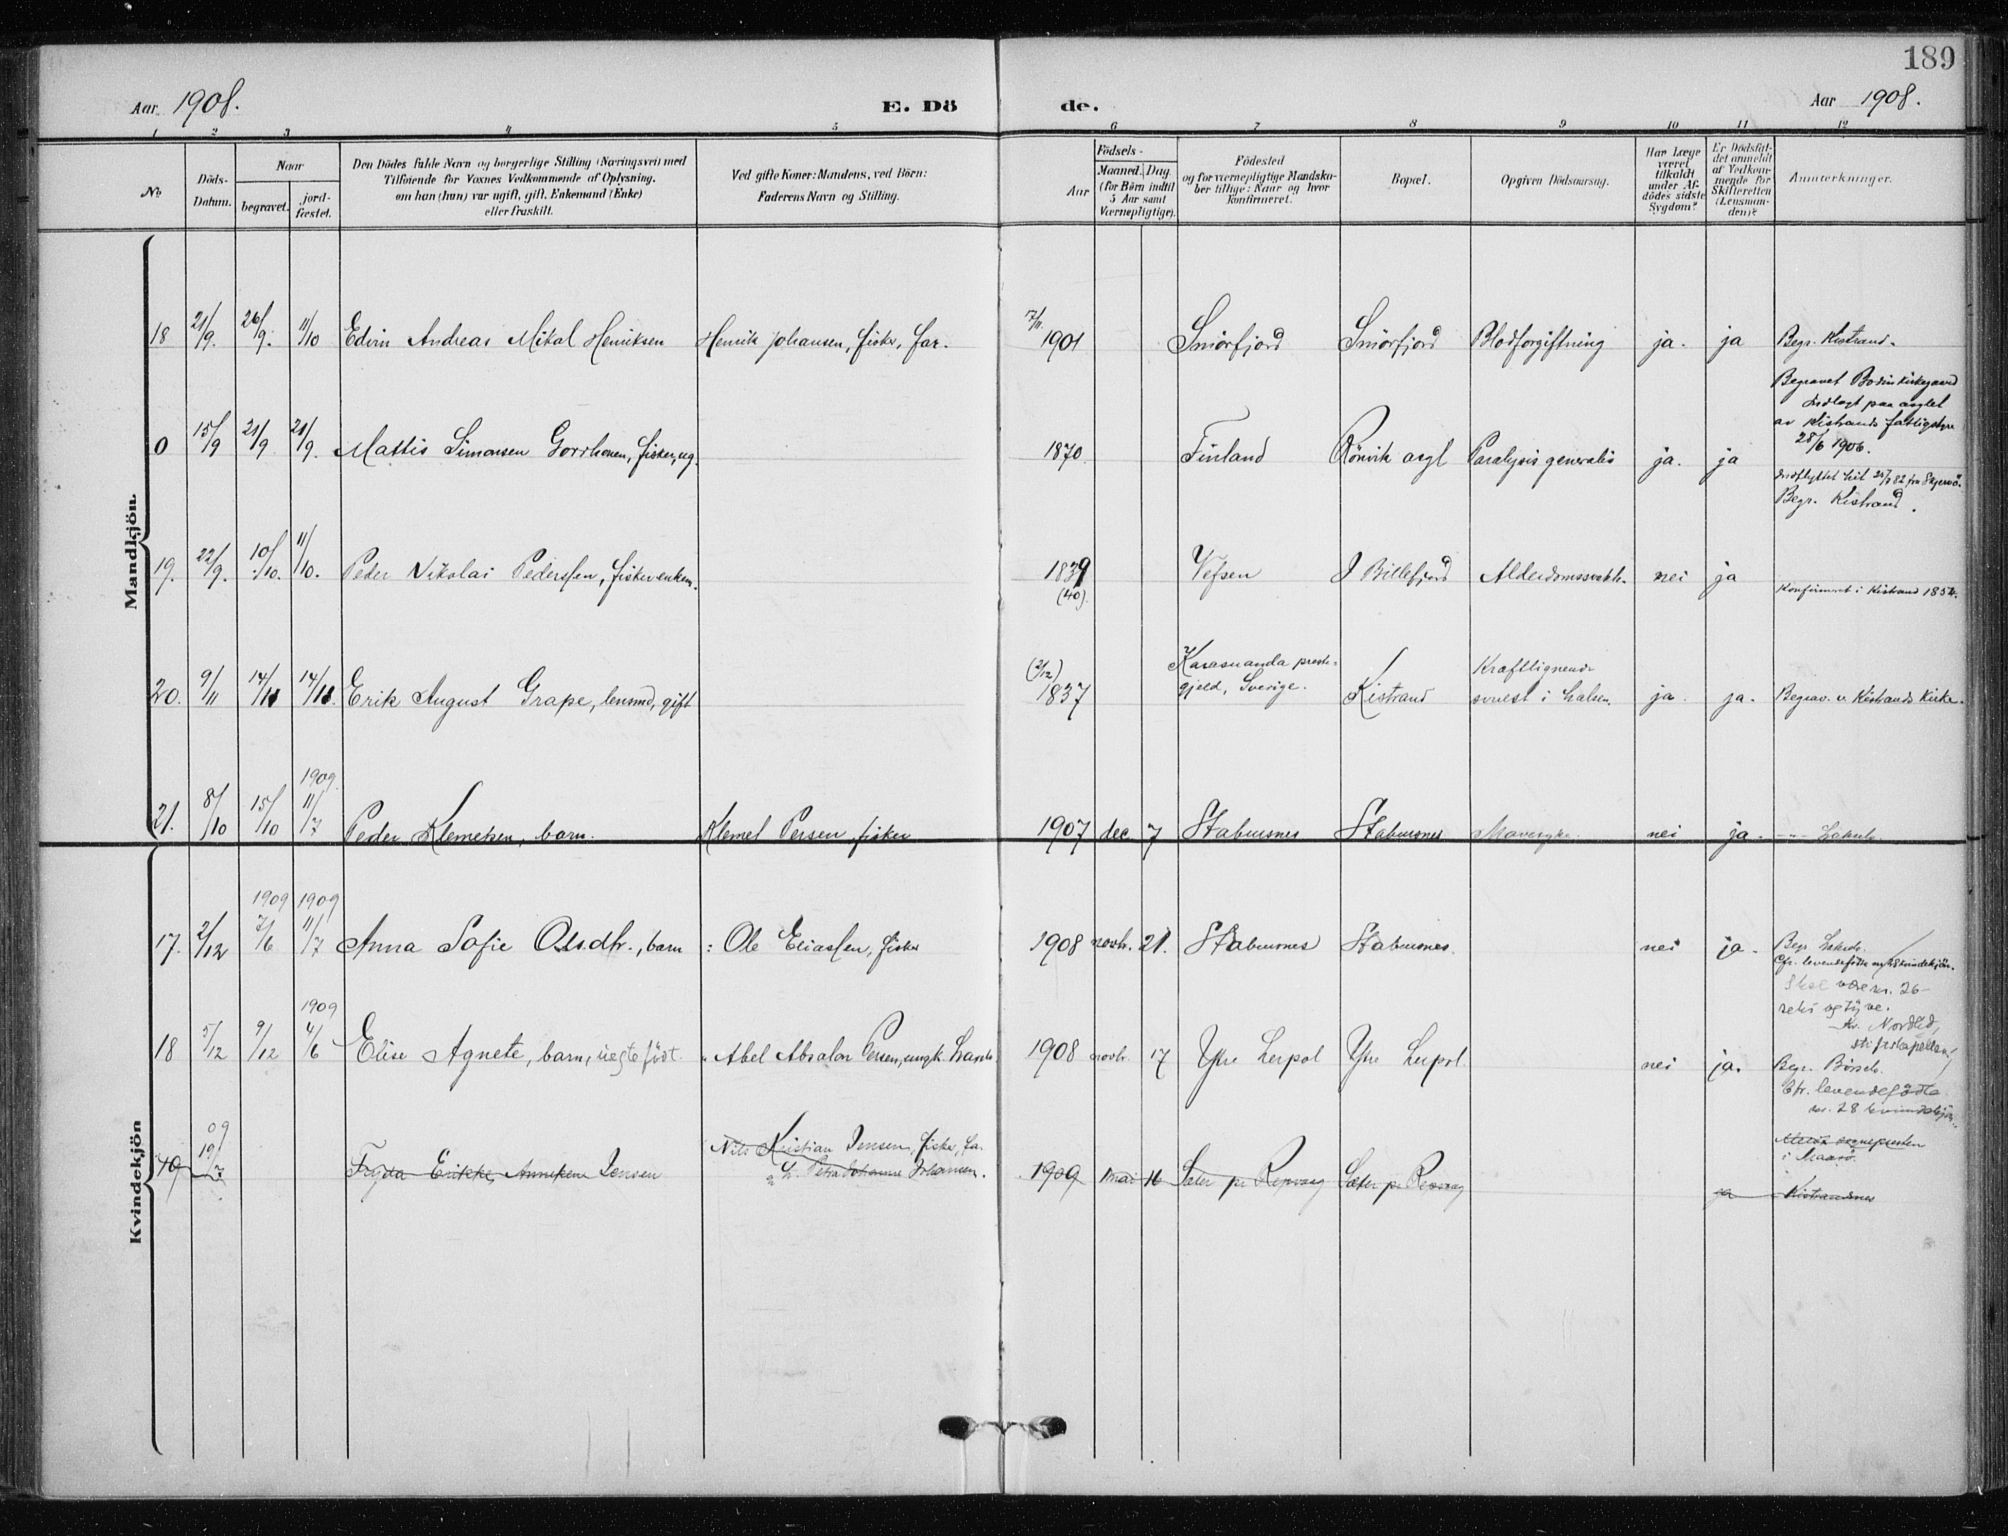 189
Aar 1908.
E. Dö
de.
Aar 1908.
1 2 3 4 5 6 7 8 9 10 11 12
No.
Döds-
Datum.
Naar
begravet.
jord-
fæstet.
Den Dödes fulde Navn og borgerlige Stilling (Næringsvei) med
Tilföiende for Voxnes Vedkommende af Oplysning,
om han (hun) var ugift, gift, Enkemand (Enke)
eller fraskilt.
Ved gifte Koner: Mandens, ved Börn:
Faderens Navn og Stilling.
Födsels-
Aar
Maaned. Dag.
(for Börn indtil
5 Aar samt
Værnepligtige).
Födested
og for værnepligtige Mandska-
ber tillige: Naar og hvor
konfirmeret.
Bopæl.
Opgiven Dödsaarsag.
Har Læge
været
tilkaldt
under Af-
dödes sidste
Sygdom?
Er Dödsfal-
det anmeldt
af Vedkom-
mende for
Skifteretten
(Lensman-
den)?
Anmerkninger.
Mandkjön.
18 21/9. 26/9. 11/10 Edvin Andreas Mikal Henriksen Henrik Johansen, fisker, far. 7/11. 1901 Smörfjord Smörfjord Blodforgiftning ja. ja Begr. Kistrand.
0 15/9 21/9 21/9. Mattis Simonsen Gorrhonen, fisker, ug. 1870 Finland Rönvik asyl Paralysis generalis ja. ja
Begravet Bodin kirkegaard
Indlagt paa asylet
av Kistrands fattigstyre
28/6 1906.
19. 22/9. 10/10. 11/10. Peder Nikolai Pederssen, fisker enkem. 1839 (40). Vefsen I Billefjord nei ja
Begr. Kistrand.
Konfirmeret i Kistrand 1854.
20. 9/11 14/11 14/11. Erik August Grape, lensmd, gift (21/12) 1837
Karasuanda preste-
gjeld, Sverige.
Kistrand
Kræftlignende
svulst i halsen.
ja. ja. Begrav. v. Kistrands Kirke.
1909
21. 8/10 15/10 11/7 Peder Klemetsen, barn. Klemet Persen, fisker 1907 dec. 7 Stabursnes Stabursnes Mavesyke. nei ja. -"- Lakselv.
Kvindekjön
1909 1909
17. 2/12 7/6 11/7 Anna Sofie Olsdtr., barn : Ole Eliassen, fisker 1908 novbr. 21. Stabursnes Stabursnes. nei ja.
Begr. Lakselv.
Skal være nr. 26 -
seks og tyve.
Av. Nordlid,
stiftskapellan
1909
18 5/12 9/12 4/6 Elise Agnete, barn, uegte födt. " Abel Absalon Persen, ungk. 1908 novbr. 17 Ytre Leirpol Ytre Leirpol nei ja.
Begr. Börselv.
Cfr. levendefödte
nr. 28 kvindekjön.
09
19 19/7 Fryda Erikke Anniken Jensen
Nils Kristian Jensen, fisker, far
Petra Johanne Johansen.
1909 mai 16 Sæter pr Repvaag Sæter pr Repvaag ja
sognepresten
i Maasö.
Kistrandnes